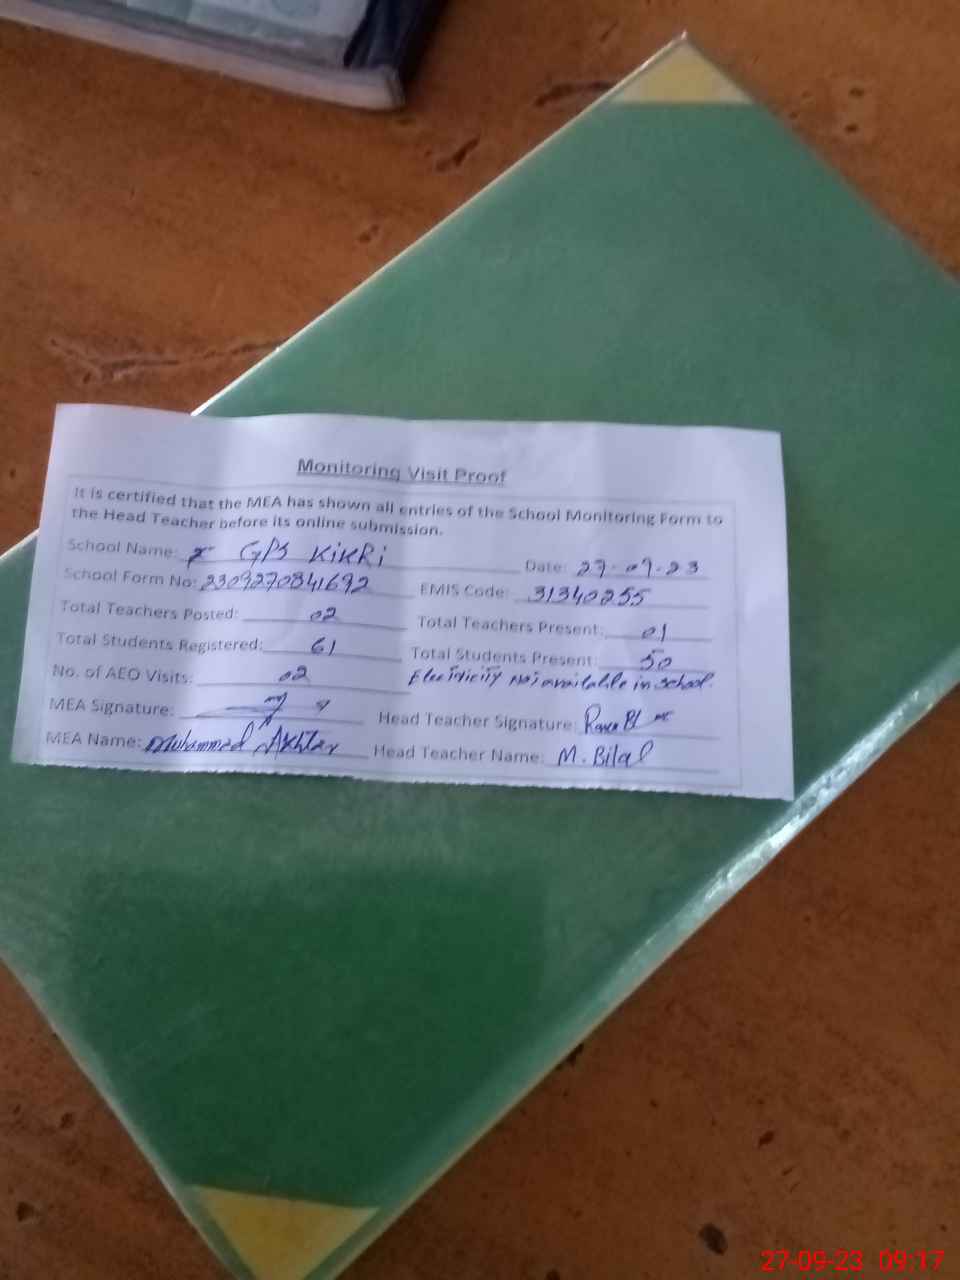 Monitoring Visit Proof
It is certified that the MEA has shown all entries of the School Monitoring Form to
the Head Teacher before its online submission.
School Name: GPS KiKRi Date: 27-09-23
School Form No: 2309270841692 EMIS Code: 31340255
Total Teachers Posted: 02 Total Teachers Present: 01
Total Students Registered: 61 Total Students Present: 50
No. of AEO Visits: 02 Electricity Not available in school.
MEA Signature: Head Teacher Signature:
MEA Name: Muhammad Akhter Head Teacher Name: M. Bilal
27-09-23 09:17